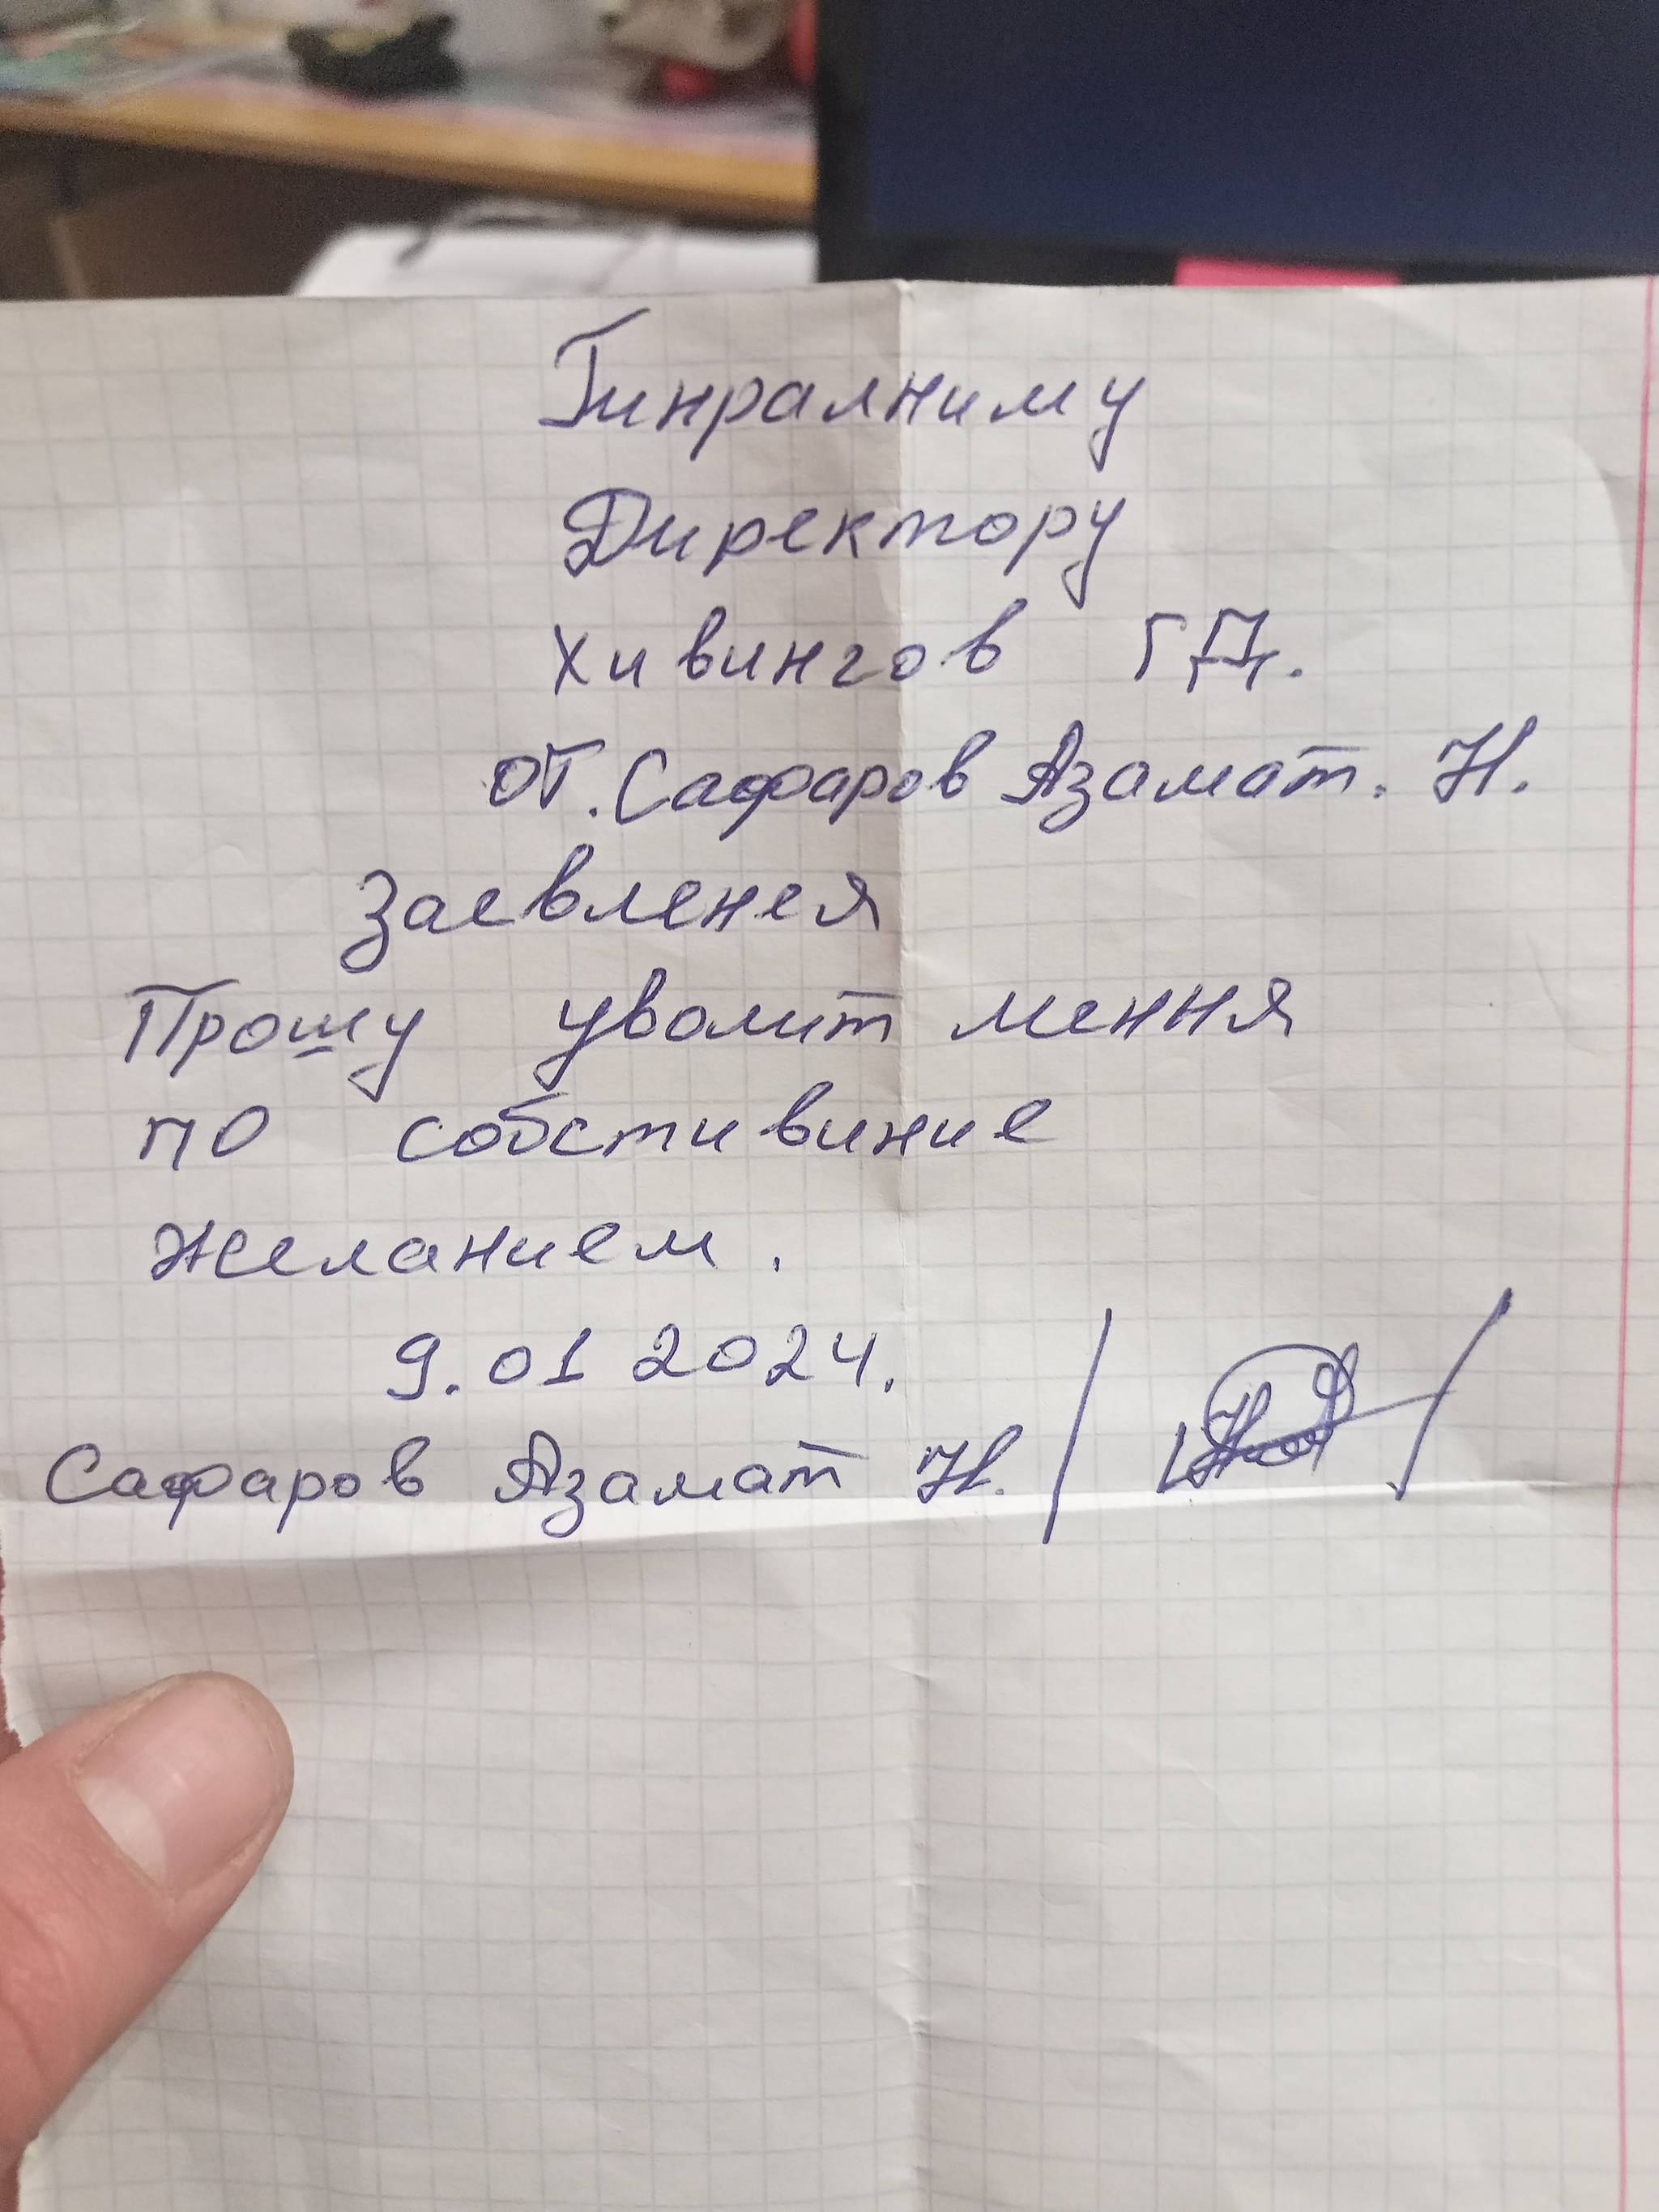 Гинралниму
Директору
Хивингов Г Д.
от. Сафаров Азамат. Н.
Заевленея
Прошу уволит мення
по собстивиние
желанием.
9.01 2024.
Сафаров Азамат Н. / /